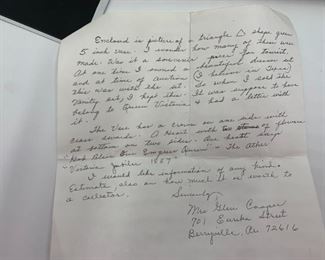 Enclosed is picture of a triangle △ shape green
5 inch vase. I wonder how many of these were
made. Was it a souvenir piece for tourist.
At one time I owned a beautiful dresser set
and at time of auction (I believe in Texas)
this was with the set. So when I sold the
Vanity set, I kept this. It was suppose to have
belong to Queen Victoria & had a letter with
it.
The Vase has a crown on one side with
cross swords. A Heart with two stems of flowers
at bottom on two sides. One heart says
"God Bless Our Empress Queen" - The other
"Victoria Jubilee 1887"
I would take information of any kind.
Estimate, also on how much it is worth to
a collector.
Sincerely,
Mrs Glen Cooper
701 Eureka Street
Berryville, Ar. 72616